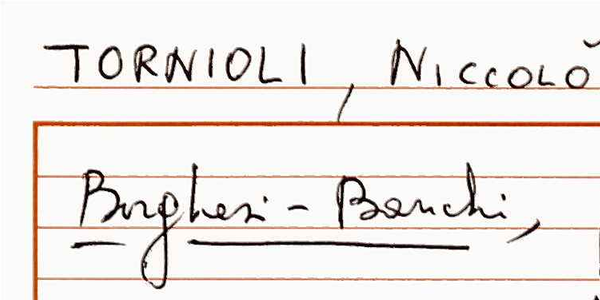 TORNIOLI, NICCOLÒ
Borghesi - Bianchi,